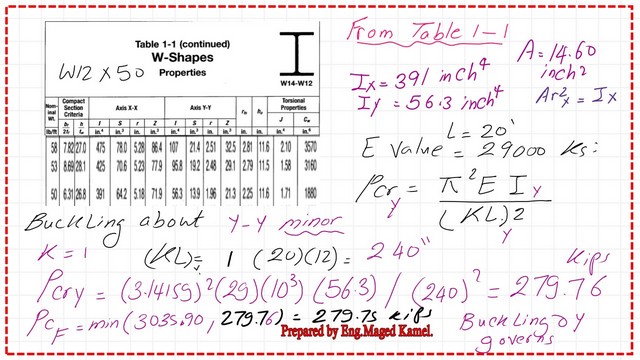 From Table 1-1
Table 1-1 (continued)
W-Shapes
Properties
W14-W12
W12 x 50
A = 14.60
inch2
Ix = 391 inch4
Iy = 56.3 inch4
Ar²x = Ix
Nom-inal Wt. Compact Section Criteria Axis X-X Axis Y-Y rts ho Torsional Properties
bf/2tf h/tw I S r Z I S r Z J Cw
lb/ft in.4 in.3 in. in.3 in.4 in.3 in. in.3 in. in. in.4 in.6
58 7.82 27.0 475 78.0 5.28 86.4 107 21.4 2.51 32.5 2.81 11.6 2.10 3570
53 8.69 28.1 425 70.6 5.23 77.9 95.8 19.2 2.48 29.1 2.79 11.5 1.58 3160
50 6.31 26.8 391 64.2 5.18 71.9 56.3 13.9 1.96 21.3 2.25 11.6 1.71 1880
L = 20'
E value = 29000 Ksi
Pcry = π² E Iy / (KL)2y
Buckling about Y-Y minor
K = 1 (KL)y = 1 (20)(12) = 240"
Kips
Pcry = (3.14159)²(29)(10³)(56.3)/(240)² = 279.76
PcF = min(3035.90, 279.76) = 279.75 kips
Buckling y
governs
Prepared by Eng.Maged Kamel.